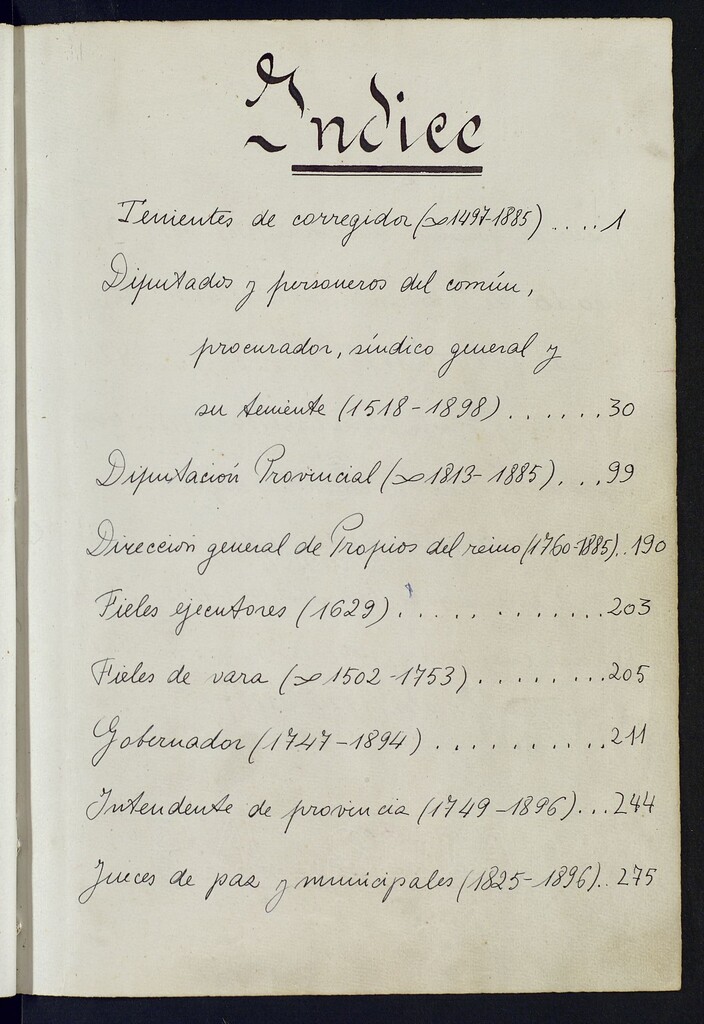 Indice
Tenientes de corregidor (∞1497-1885) .....1
Diputados y personeros del común,
procurador, síndico general y
su teniente (1518-1898) ......30
Diputación Provincial (∞1813-1885)...99
Dirección general de Propios del reino (1760-1885)..190
Fieles ejecutores (1629).............203
Fieles de vara (∞1502-1753) ........205
Gobernador (1747-1894) ...........211
Intendente de provincia (1749-1896)...244
Jueces de paz y municipales (1825-1896)..275